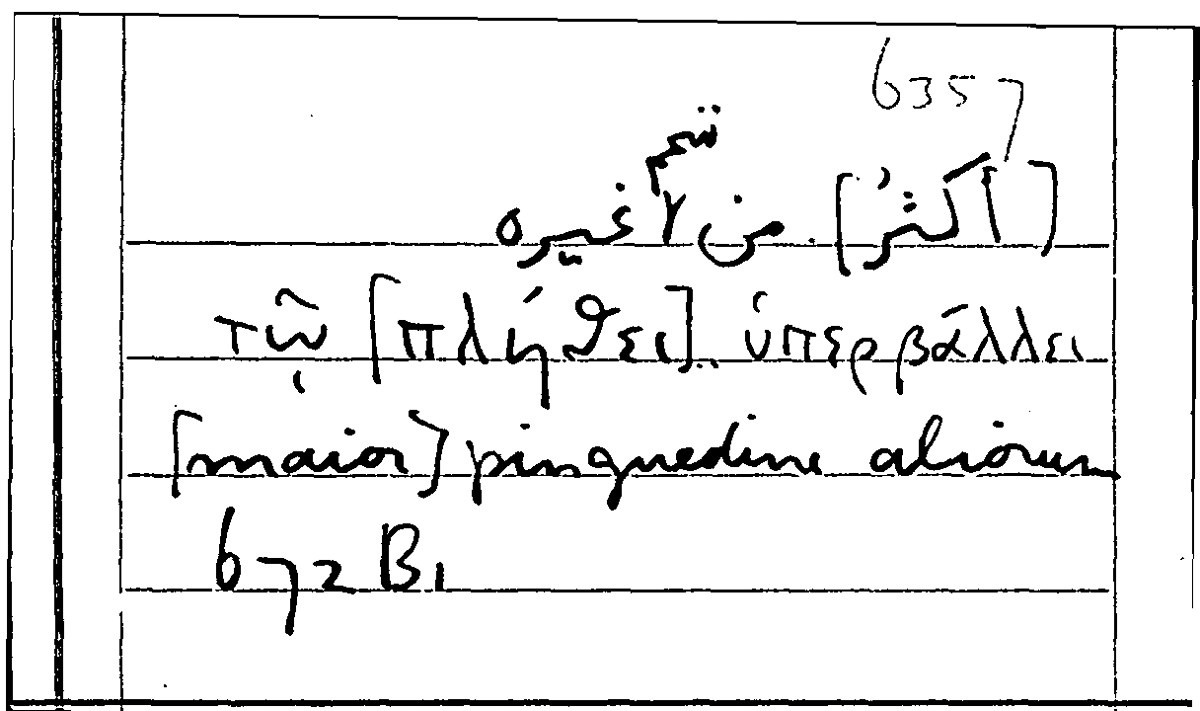 6357
شحم
[أكثرُ] من غيره
τῷ [πλήθει].. ὑπερβάλλει
[maior] pinguedine aliorum
672 B1